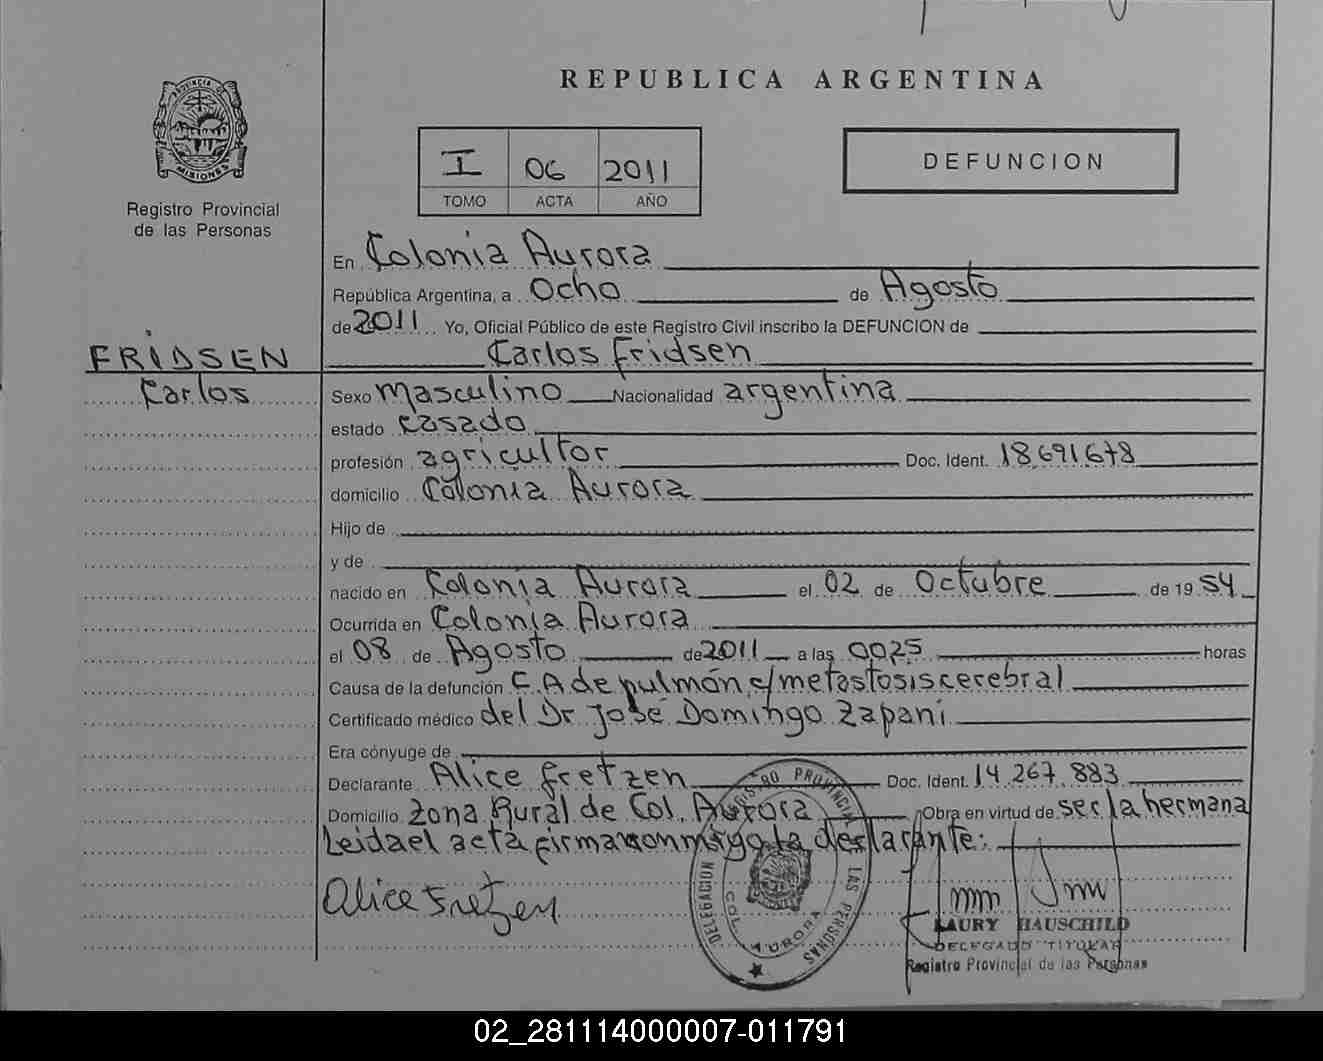 REPUBLICA ARGENTINA
PROVINCIA DE MISIONES
Registro Provincial
de las Personas
I 06 2011
TOMO ACTA AÑO
DEFUNCION
En Colonia Aurora
República Argentina, a Ocho de Agosto
de 2011 Yo, Oficial Público de este Registro Civil inscribo la DEFUNCION de
FRIDSEN
Carlos Fridsen
Carlos
Sexo masculino Nacionalidad argentina
estado casado
profesión agricultor Doc. Ident. 18691678
domicilio Colonia Aurora
Hijo de
y de
nacido en Colonia Aurora el 02 de Octubre de 1954
Ocurrida en Colonia Aurora
el 08 de Agosto de 2011 a las 0025 horas
Causa de la defunción C.A de pulmón c/metastosis cerebral
Certificado médico del Dr José Domingo Zapani
Era cónyuge de
Declarante Alice fretzen Doc. Ident. 14.267.883
Domicilio Zona Rural de Col. Aurora Obra en virtud de ser la hermana
Leida el acta firma conmigo la declarante:
Alice Fretzen
DELEGACION REGISTRO PROVINCIAL DE LAS PERSONAS
COL. AURORA
LAURY HAUSCHILD
DELEGADO TITULAR
Registro Provincial de las Personas
02_281114000007-011791